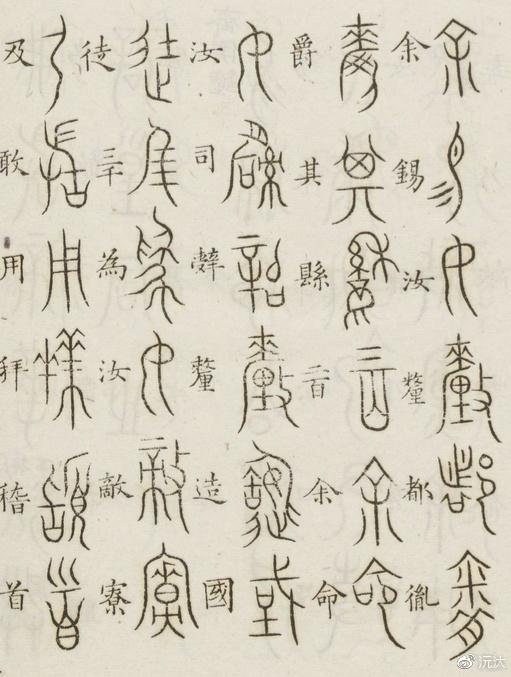 余錫汝釐都胤
爵其縣二百余命
汝司辝釐造國
徒三千為汝敵寮
及敢用拜稽首